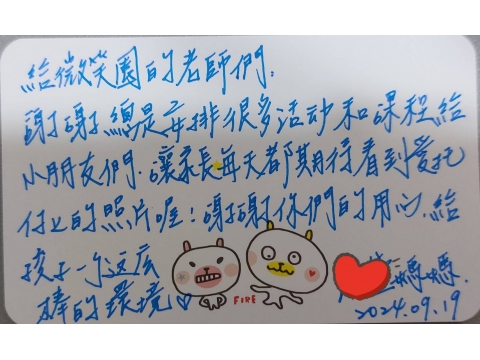 給微笑園的老師們:
謝謝總是安排很多活动和課程給
小朋友們.讓家長每天都期待看到愛托
付上的照片喔!謝謝你們的用心.給
孩子一个这広
棒的環境
FIRE
媽媽.
2024.09.19